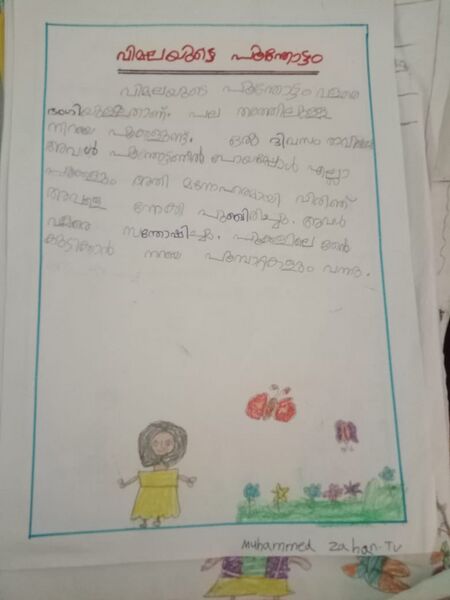 വിമലയുടെ പൂന്തോട്ടം
വിമലയുടെ പൂന്തോട്ടം വളരെ
ഭംഗിയുള്ളതാണ്. പല തരത്തിലുള്ള
നിറയെ പൂക്കളുണ്ട്. ഒരു ദിവസം രാവിലെ
അവൾ പൂന്തോട്ടത്തിൽ പോയപ്പോൾ എല്ലാ
പൂക്കളും അതി മനോഹരമായി വിരിഞ്ഞ്
അവളെ നോക്കി പുഞ്ചിരിച്ചു. അവൾ
വളരെ സന്തോഷിച്ചു. പൂക്കളിലെ തേൻ
കുടിക്കാൻ നിറയെ പൂമ്പാറ്റകളും വന്നു.
Muhammed Zahan. TV